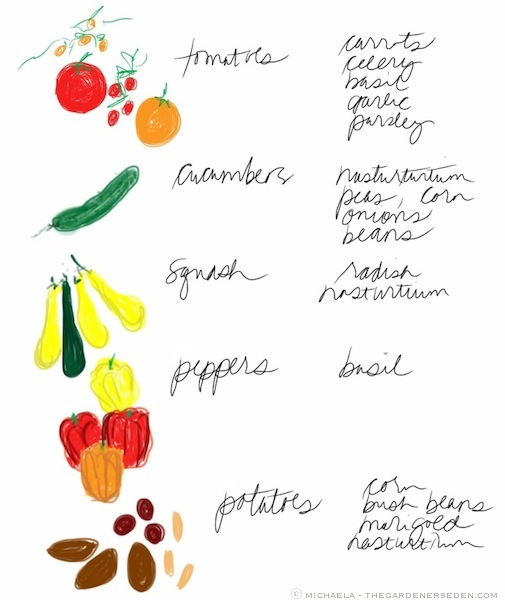 tomatoes
carrots
celery
basil
garlic
parsley
cucumbers
nasturturtum
peas, corn
onions
beans
squash
radish
nasturtium
peppers
basil
potatoes
corn
bush beans
marigold
nasturtium
© MICHAELA - THEGARDENERSEDEN.COM